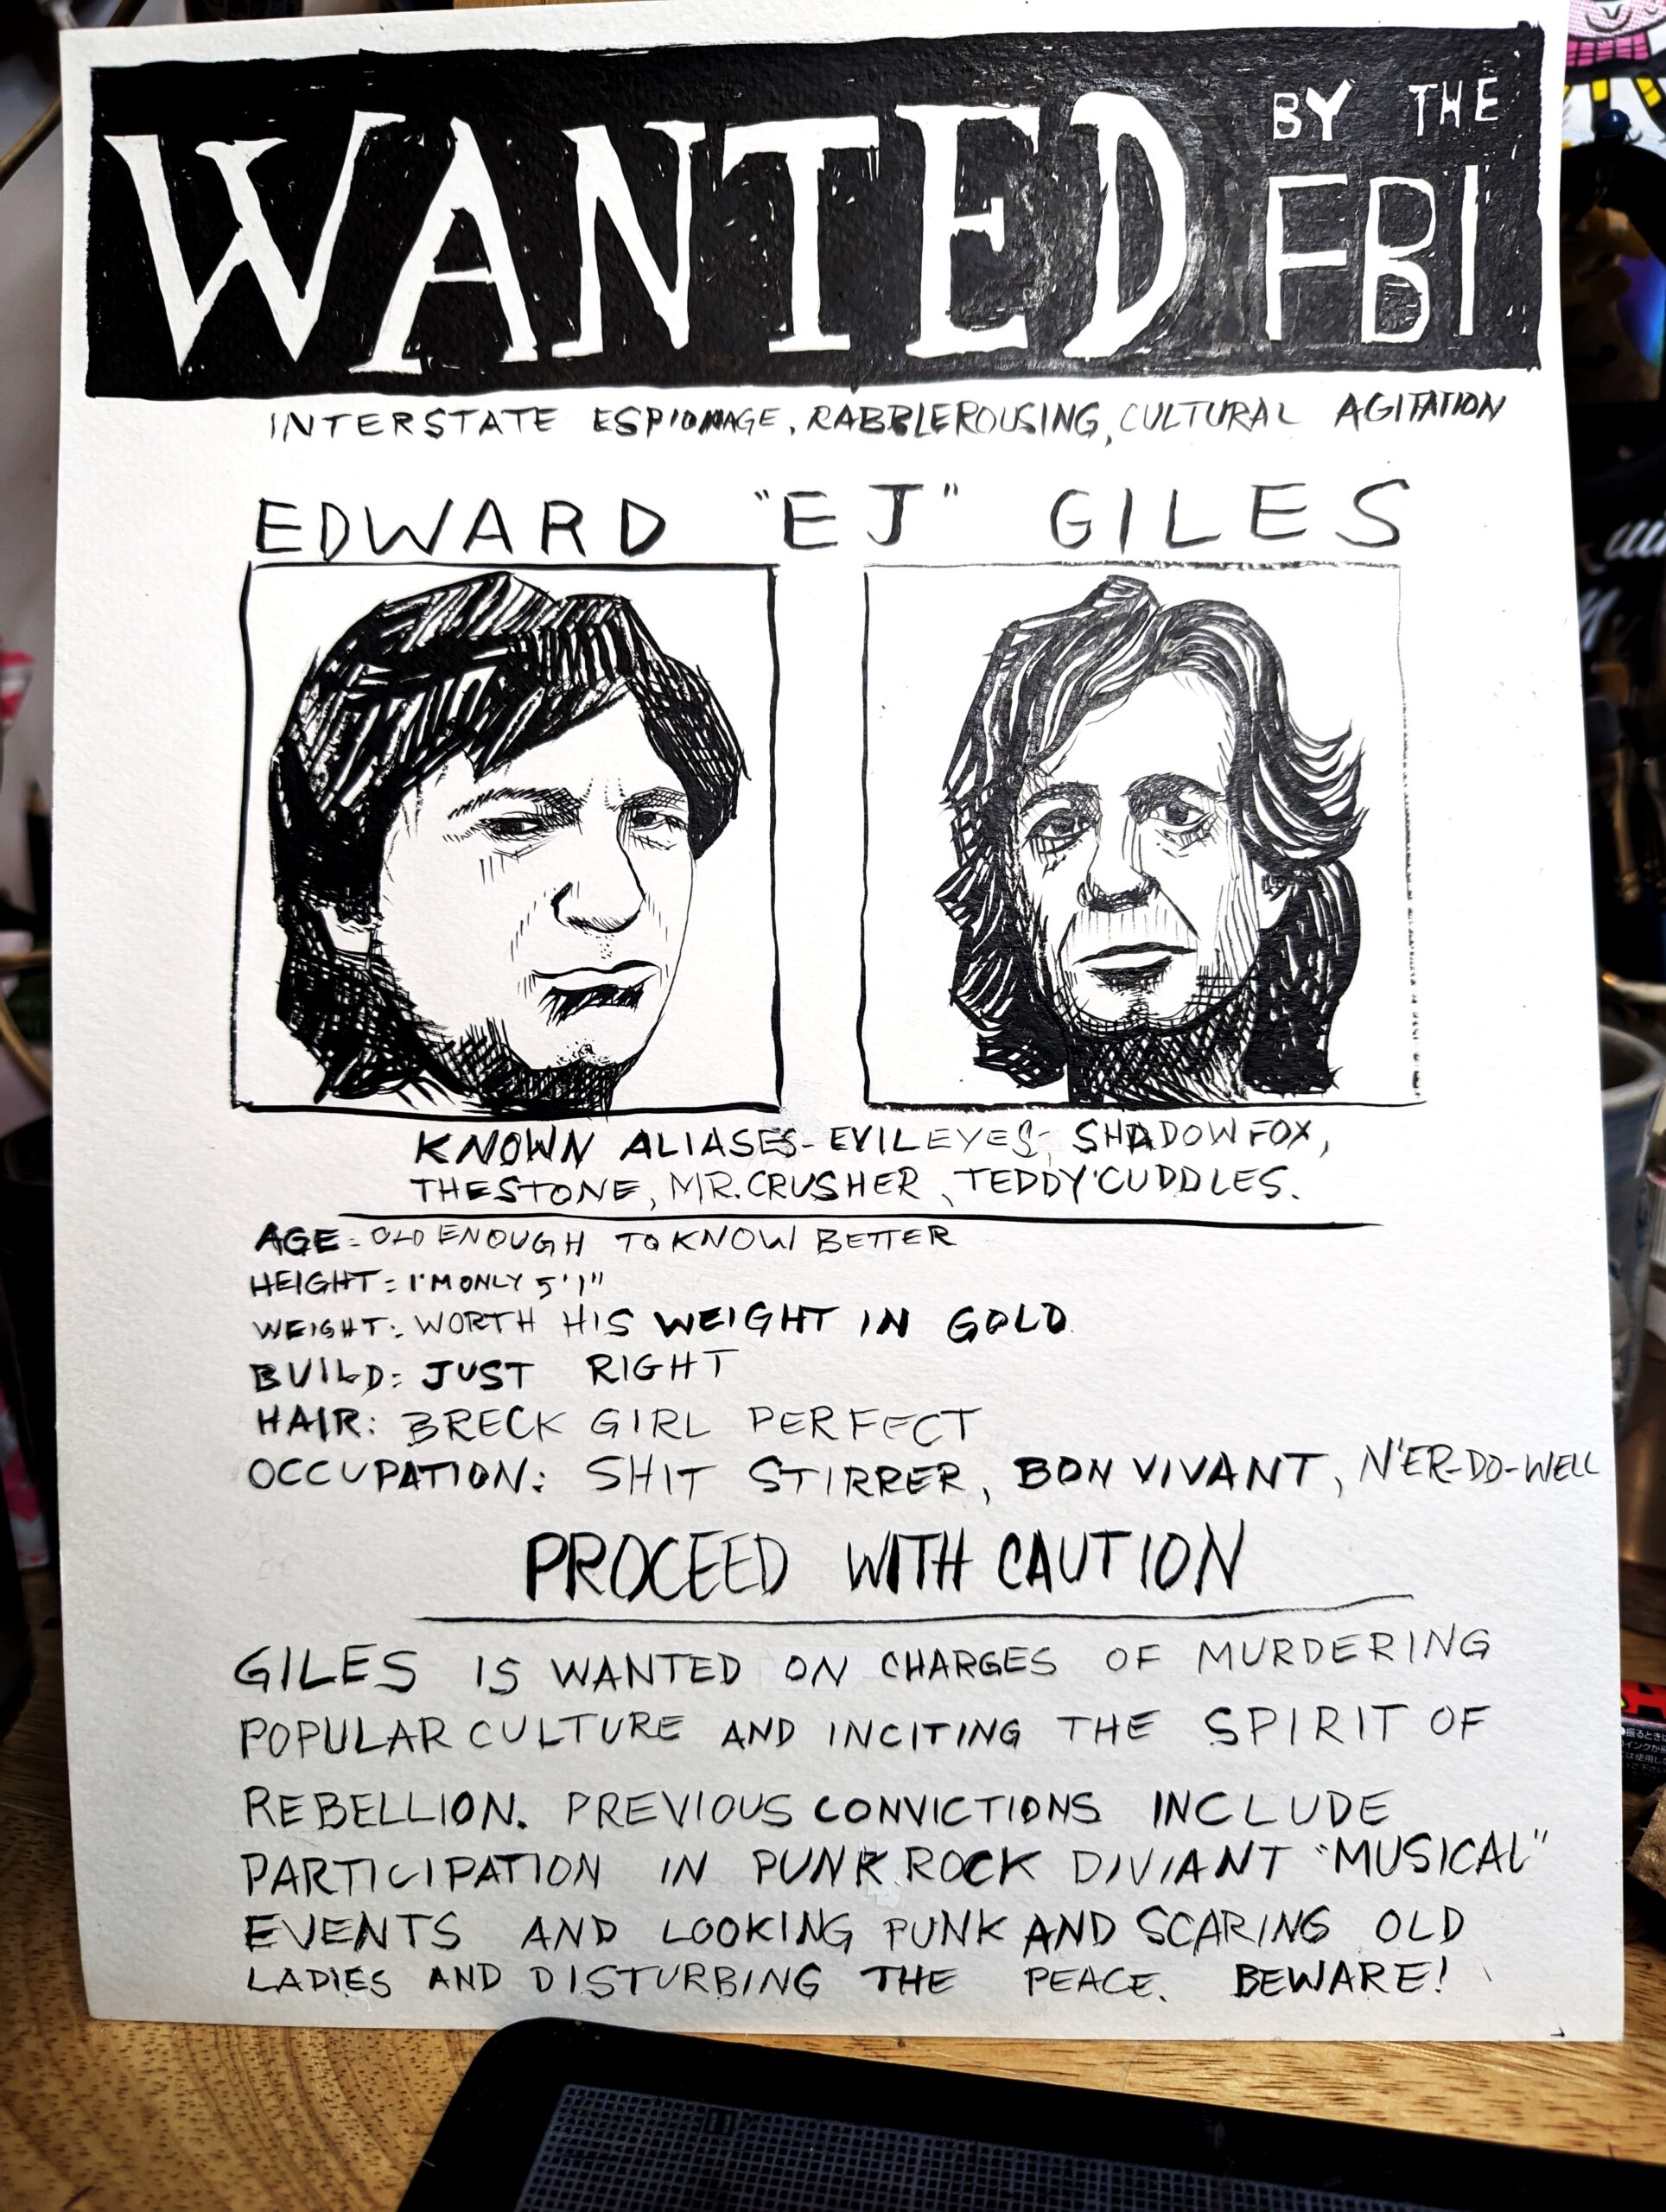 WANTED BY THE FBI
INTERSTATE ESPIONAGE, RABBLEROUSING, CULTURAL AGITATION
EDWARD "EJ" GILES
KNOWN ALIASES- EVILEYES, SHADOWFOX,
THESTONE, MR. CRUSHER, TEDDY CUDDLES.
AGE: OLD ENOUGH TO KNOW BETTER
HEIGHT: I'M ONLY 5'1"
WEIGHT: WORTH HIS WEIGHT IN GOLD
BUILD: JUST RIGHT
HAIR: BRECK GIRL PERFECT
OCCUPATION: SHIT STIRRER, BON VIVANT, N'ER-DO-WELL
PROCEED WITH CAUTION
GILES IS WANTED ON CHARGES OF MURDERING
POPULAR CULTURE AND INCITING THE SPIRIT OF
REBELLION. PREVIOUS CONVICTIONS INCLUDE
PARTICIPATION IN PUNK ROCK DIVIANT "MUSICAL"
EVENTS AND LOOKING PUNK AND SCARING OLD
LADIES AND DISTURBING THE PEACE. BEWARE!